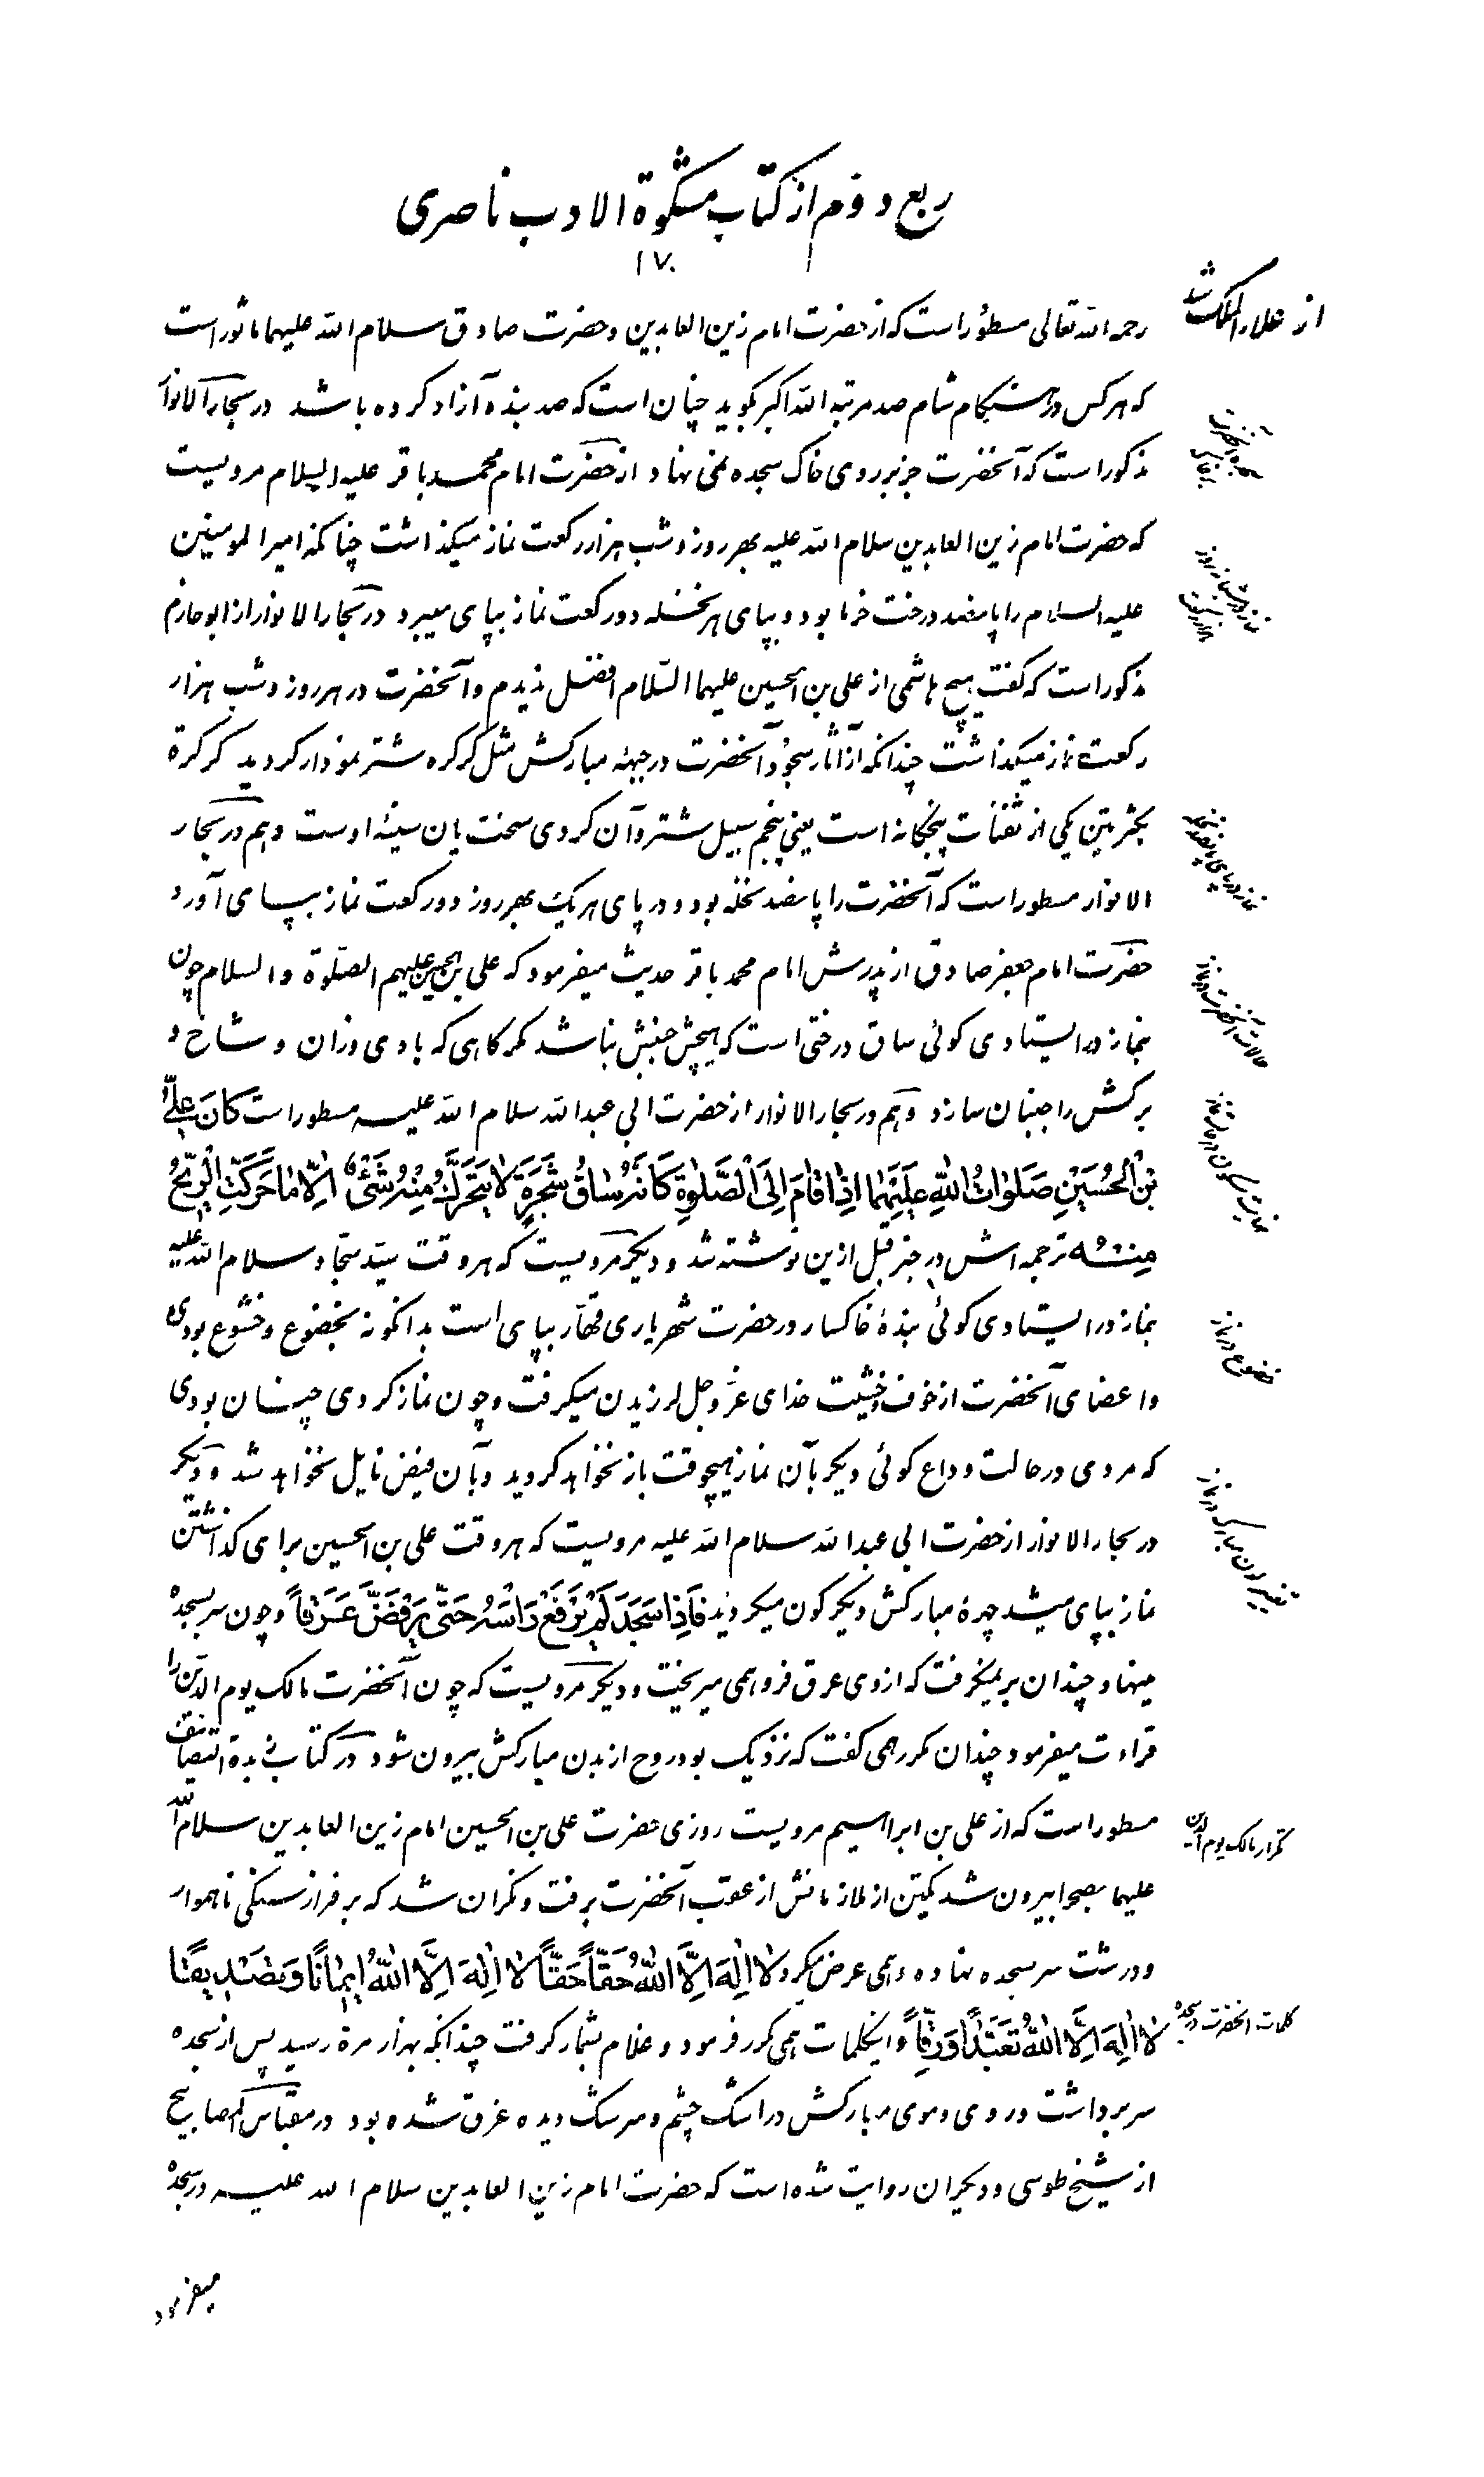 ربع دوّم از کتاب مشکوة الادب ناصری
۱۷۰
رحمه الله تعالی مسطور است که از حضرت امام زین العابدین و حضرت صادق سلام الله علیهما ماثور است
که هر کس در هنگام شام صد مرتبه الله اکبر بگوید چنان است که صد بنده آزاد کرده باشد در بحار الانوار
مذکور است که آنحضرت جز بر روی خاک سجده نمی نهاد از حضرت امام محمد باقر علیه السلام مرویست
که حضرت امام زین العابدین سلام الله علیه بهر روز و شب هزار رکعت نماز میگذاشت چنانکه امیر المومنین
علیه السلام را پانصد درخت خرما بود و بپای هر نخله دو رکعت نماز بپای میبرد در بحار الانوار از ابو حازم
مذکور است که گفت هیچ هاشمی از علی بن الحسین علیهما السّلام افضل ندیدم و آنحضرت در هر روز و شب هزار
رکعت نماز میگذاشت چندانکه از آثار سجود آنحضرت در جبهه مبارکش مثل کرکره شتر نمودار گردید کرکرة
بکسرتین یکی از ثفنات پنجگانه است یعنی پنجم سبیل شتر و آن گردی سخت یان سینه اوست و هم در بحار
الانوار مسطور است که آنحضرت را پانصد نخله بود و در پای هر یک بهر روز دو رکعت نماز بپای آورد
حضرت امام جعفر صادق از پدرش امام محمد باقر حدیث میفرمود که علی بن الحسین علیهم الصّلوة والسلام چون
بنماز در ایستادی گوئی ساق درختی است که هیچش جنبش نباشد مگر گاهی که بادی وزان و شاخ و
برگش را جنبان سازد و هم در بحار الانوار از حضرت ابی عبدالله سلام الله علیه مسطور است کَانَ عَلِیُّ
بْنُ الْحُسَیْنِ صَلَوَاتُ اللّهِ عَلَیْهِمَا اِذَا قَامَ اِلَی الصَّلوةِ کَاَنَّهُ سَاقُ شَجَرَةٍ لَا یَتَحَرَّكُ مِنْهُ شَیْءٌ اِلّا مَا حَرَّکَتِ الرّیحُ
مِنْهُ ترجمه اش در خبر قبل ازین نوشته شد و دیگر مرویست که هر وقت سیّد سجّاد سلام الله علیه
بنماز در ایستادی گوئی بندۀ خاکسار در حضرت شهریاری قهّار بپای است بدانگونه بخضوع و خشوع بودی
و اعضای آنحضرت از خوف و خشیت خدای عزّ و جل لرزیدن میگرفت و چون نماز کردی چنان بودی
که مردی در حالت وداع گوئی دیگر بآن نماز هیچوقت باز نخواهد گردید و بآن فیض نایل نخواهد شد و دیگر
در بحار الانوار از حضرت ابی عبدالله سلام الله علیه مرویست که هر وقت علی بن الحسین برای گذاشتن
نماز بپای میشد چهرۀ مبارکش دیگرگون میگردید فَاِذَا سَجَدَ لَمْ یَرْفَعْ رَاْسَهُ حَتّی یَرْفَضَّ عَرَقاً و چون سر بسجده
مینهاد چندان بر نمیگرفت که از وی عرق فرو همی میریخت و دیگر مرویست که چون آنحضرت مالک یوم الدّین را
قراءت میفرمود چندان مکرر همی گفت که نزدیک بود روح از بدن مبارکش بیرون شود در کتاب زبدة التصانیف
مسطور است که از علی بن ابراهیم مرویست روزی حضرت علی بن الحسین امام زین العابدین سلام الله
علیهما بصحرا بیرون شد یکتن از ملازمانش از عقب آنحضرت برفت و نگران شد که بر فراز سنگی ناهموار
و درشت سر بسجده نهاده و همی عرض میکرد لا اِلهَ اِلَّا اللّهُ حَقّاً حَقّاً لا اِلهَ اِلَّا اللّهُ اِیمَانًا وَ تَصْدِیقًا
لا اِلهَ اِلَّا اللّهُ تَعَبُّدًا وَ رِقّاً و اینکلمات همی مکرر فرمود و غلام بشمار گرفت چندانکه بهزار مرة رسید پس از سجده
سر برداشت و روی و موی مبارکش در اشک چشم و سرشک دیده غرق شده بود در مقباس المصابیح
از شیخ طوسی و دیگران روایت شده است که حضرت امام زین العابدین سلام الله علیه در سجده
میفرمود
نماز در شبانه روز
هزار رکعت
حالات آنحضرت در نماز
خضوع در نماز
تکرار مالک یوم الدین
کلمات آنحضرت در سجده